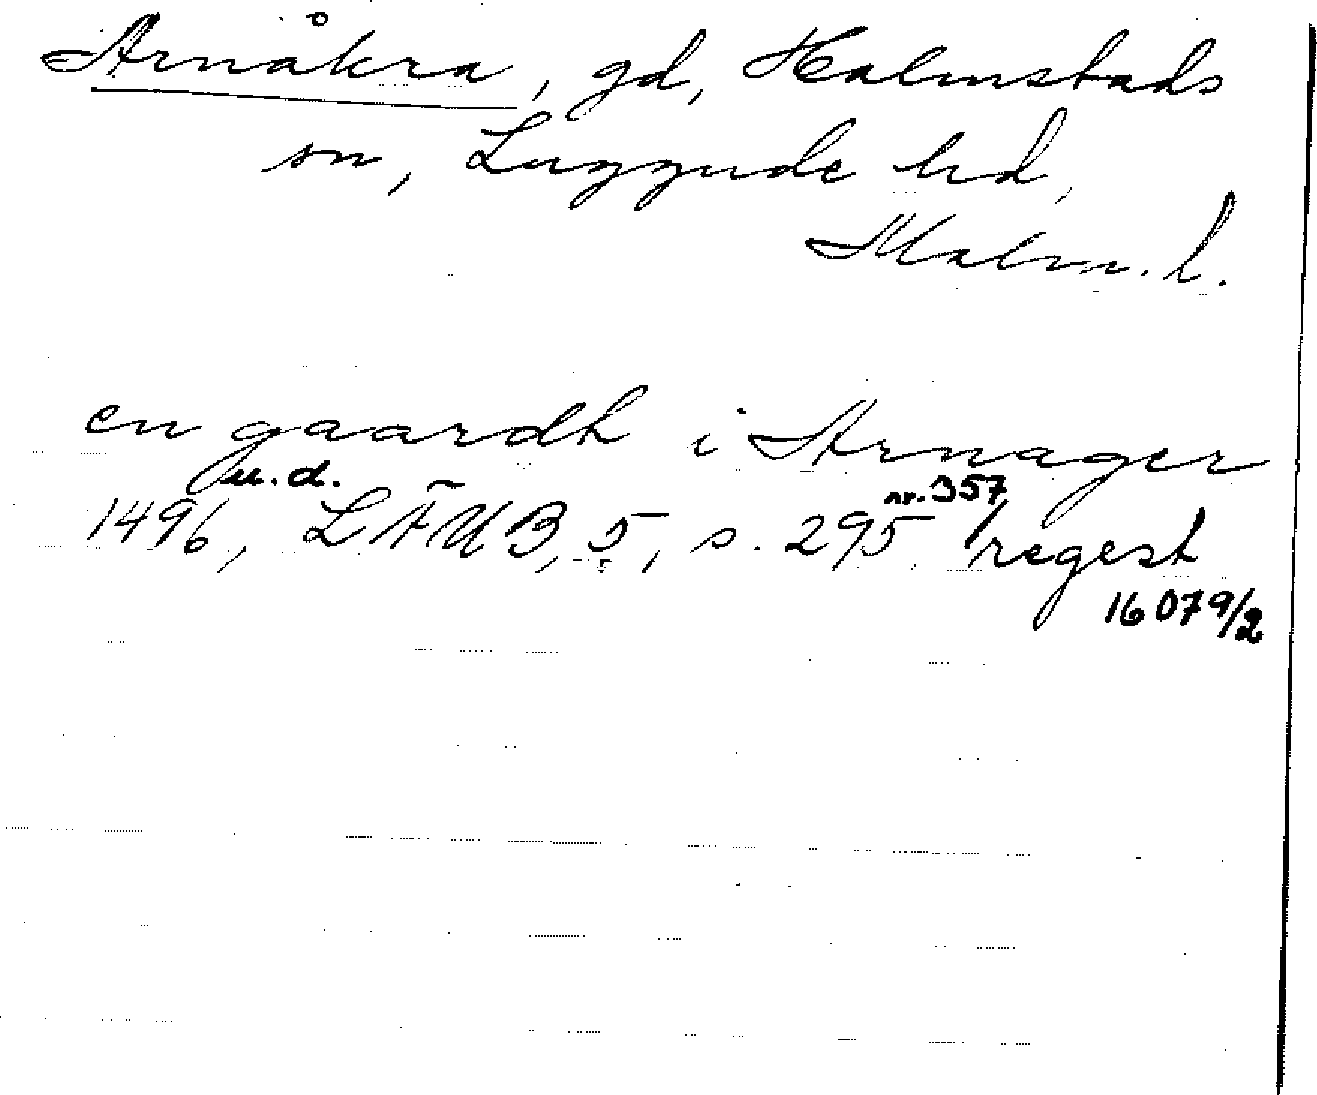 Arnåkra, gd, Halmstads
sn, Luggude hd,
Malm. l.
en gaardh i Arnager
u.d. nr. 357
1496, LÄUB, 5, s. 295 / regest
16079/2